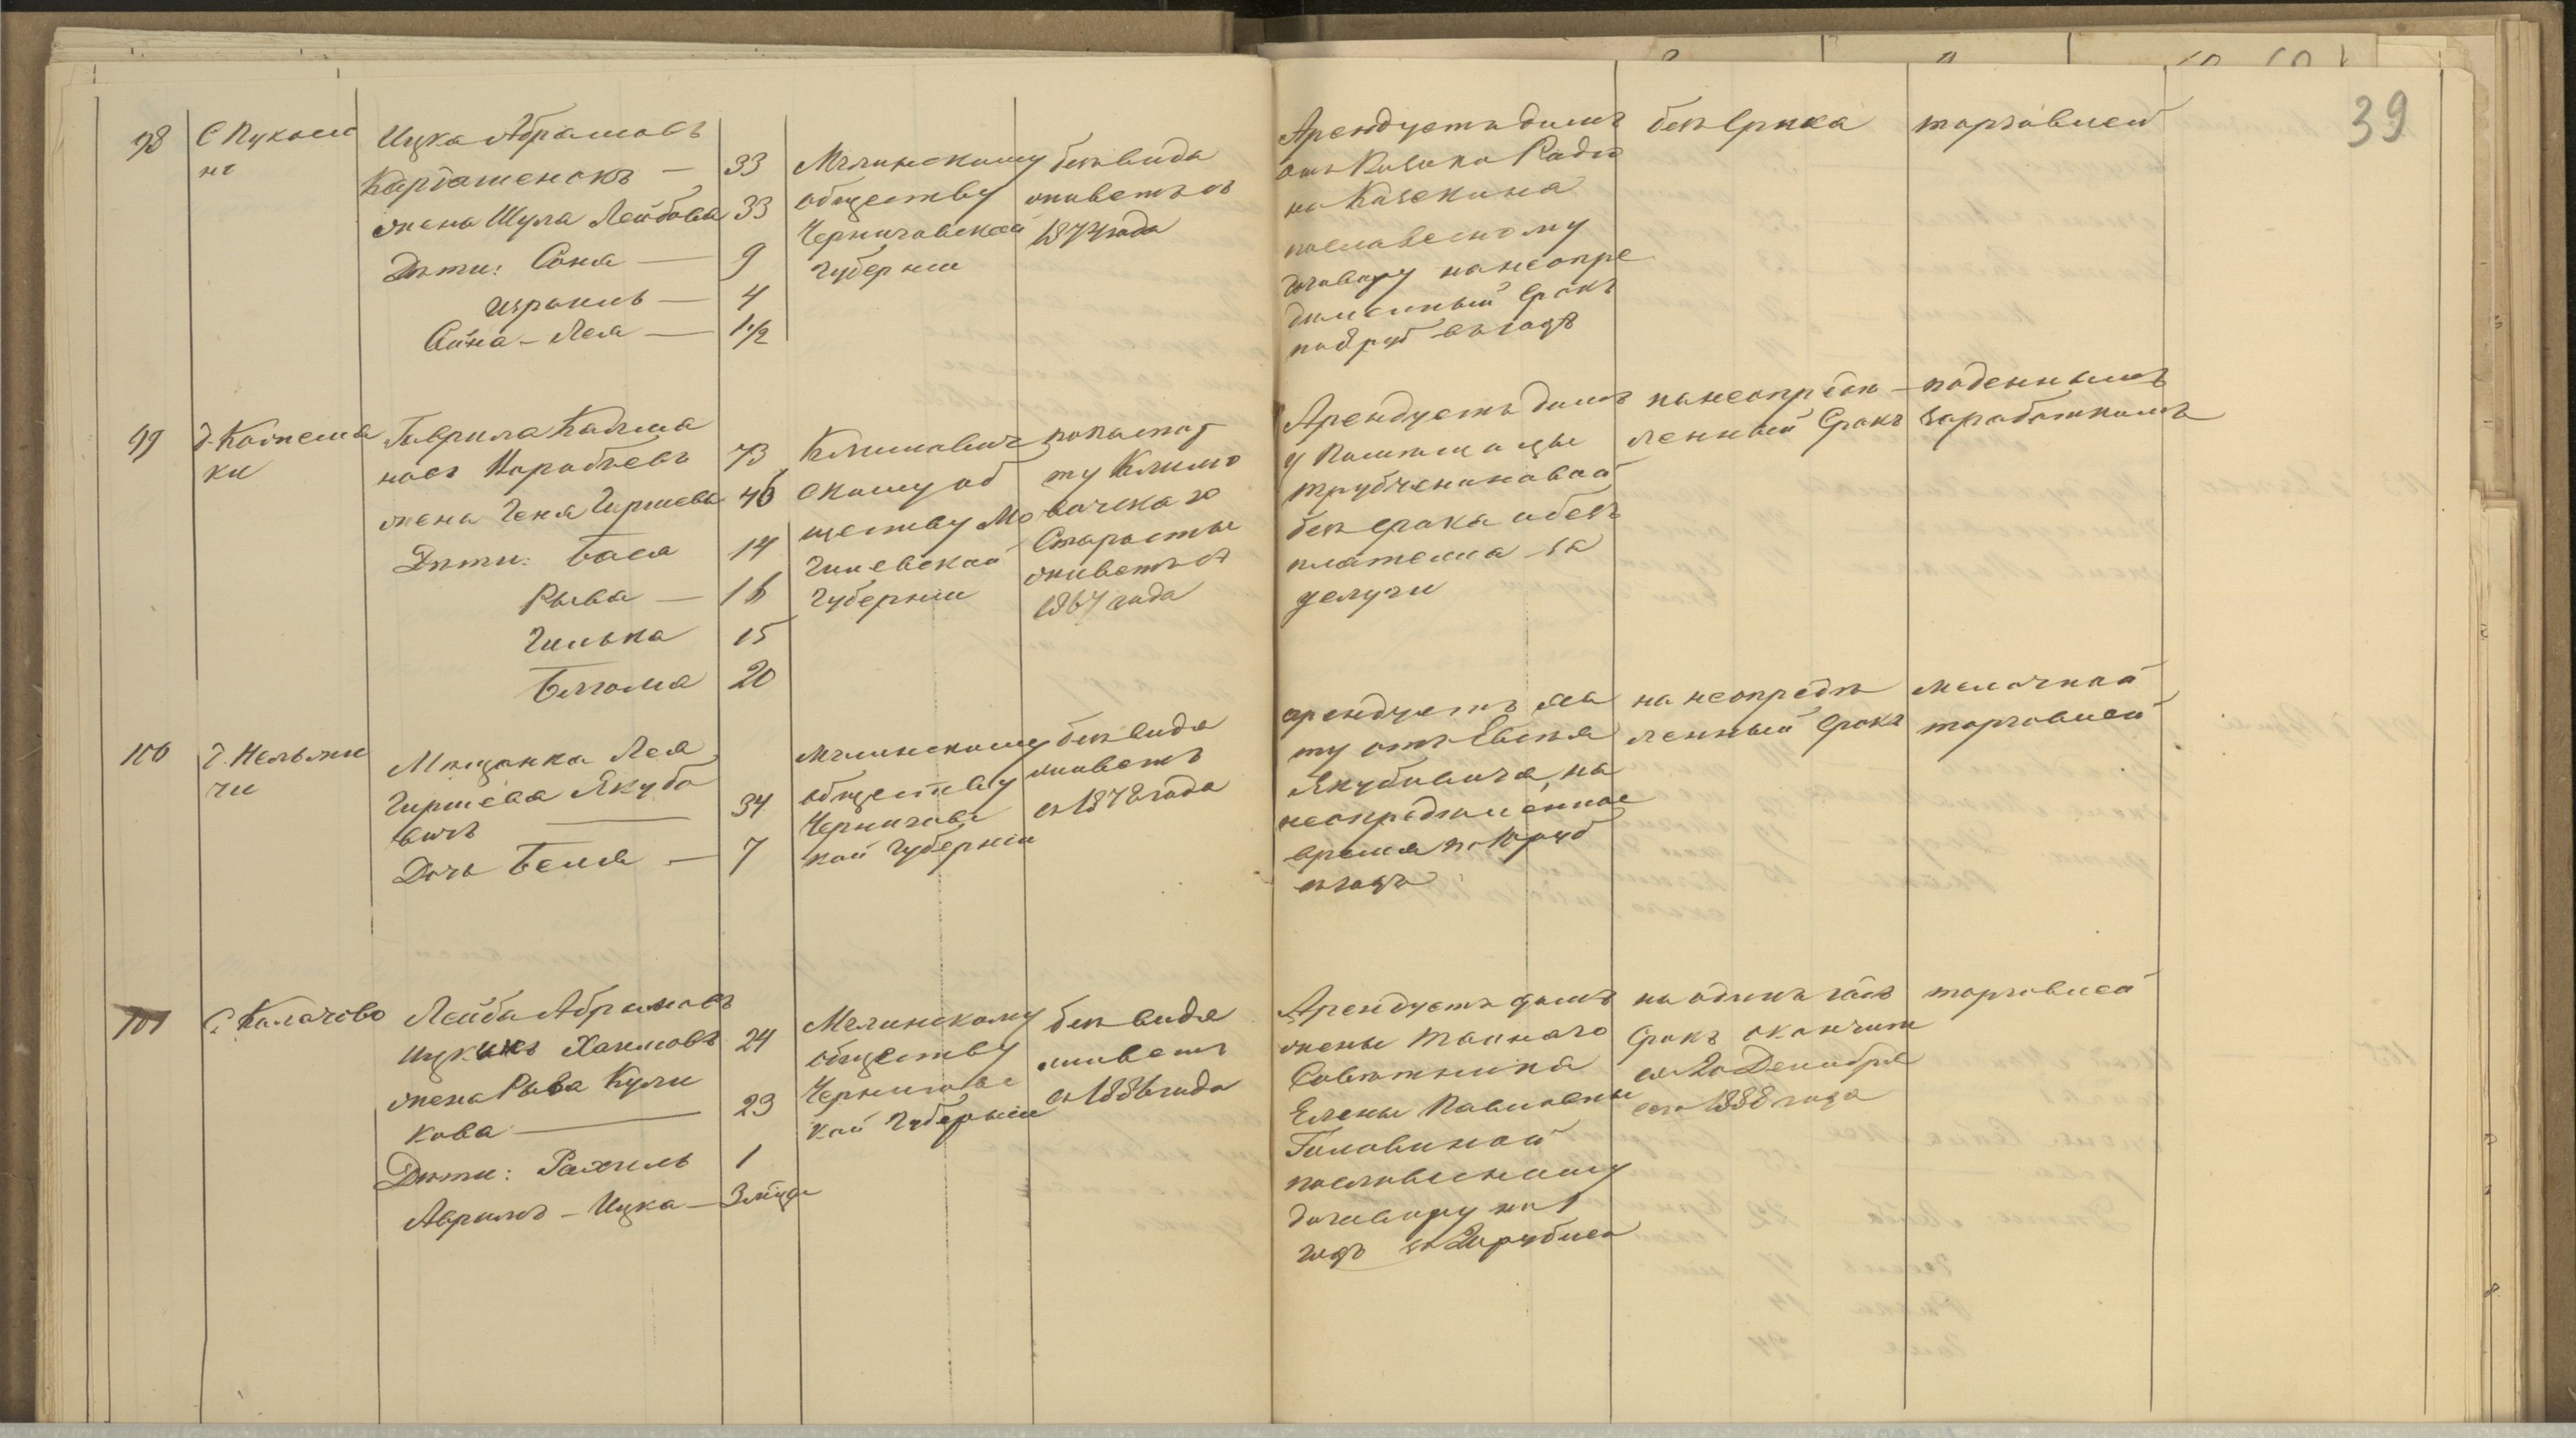 39
98
С Пуков
не
Ицка Абрамовъ
Карташенокъ — 33
жена Шула Лейбова 33
Дѣти: Соня — 9
Израиль — 4
Сійна - Лея — 1 1/2
Мглинскому
обществу
Черниговской
губерніи
безъ вида
живетъ съ
1874 года
Арендуетъ домъ
отъ
по словесному
договору на неопре
дѣленный срокъ
по 8 руб въ годъ
безъ срока
торговлей
99
д.
ки
Гаврила Калма
новъ Воробьевъ 73
жена Геня Гиршева 46
Дѣти: Бася 14
Рыва — 16
Гилька 15
20
Климович
скому об
ществу Мо
гилевской
губерніи
по паспор
ту Климо
вичскаго
Старосты
живетъ съ
1867 года
Арендуетъ домъ
у Помѣщицы
безъ срока и безъ
платежа за
услуги
на неопредѣ
ленный срокъ
поденнымъ
заработкомъ
100
чи
Мѣщанка Лея
Гиршева Якубо
вичъ — 34
Дочь Беля — 7
Мглинскому
обществу
Черниговс
кой губерніи
безъ вида
живетъ
съ 1878 года
арендуетъ ха
ту отъ Евсѣя
Якубовича, на
неопредѣленное
время по 10 руб
въ годъ
на неопредѣ
ленный срокъ
мелочной
торговлей
101
С. Колачово
Лейба Абрамовъ
Ицкинъ Хаимовъ 24
жена Рыва Кули
кова — 23
Дѣти: Рахиль 1
Аврамъ - Ицка — 3 мѣсяц
Мглинскому
обществу
Черниговс
кой губерніи
безъ вида
живетъ
съ 1886 года
Арендуетъ домъ
жены Тайнаго
Совѣтника
Елены Павловны
Головиной
по словесному
договору на 1
годъ за 20 рублей
на одинъ годъ
срокъ окончит
ся 20 Декабря
сего 1888 года
торговлей